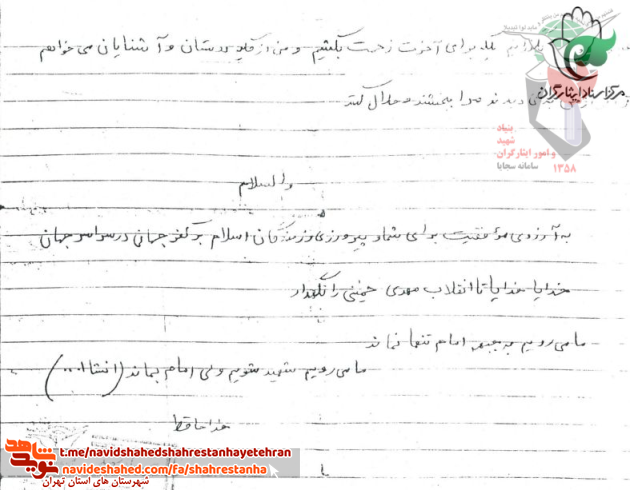 برای آخرت زحمت بکشیم و من از کلیه دوستان و آشنایان می خواهم
مرا ببخشند و حلال کنند
مرکز اسناد ایثارگران
بنیاد
شهید
و امور ایثارگران
سامانه سجایا
۱۳۵۸
والسلام
به آرزوی موفقیت برای شما و پیروزی رزمندگان اسلام بر کفر جهان در سراسر جهان
خدایا خدایا تا انقلاب مهدی خمینی را نگهدار
ما می رویم به جبهه امام تنها نماند
ما می رویم شهید شویم ولی امام بماند (انشاا...)
خداحافظ
شاهد
نوید
t.me/navidshahedshahrestanhayetehran
navideshahed.com/fa/shahrestanha
شهرستان های استان تهران